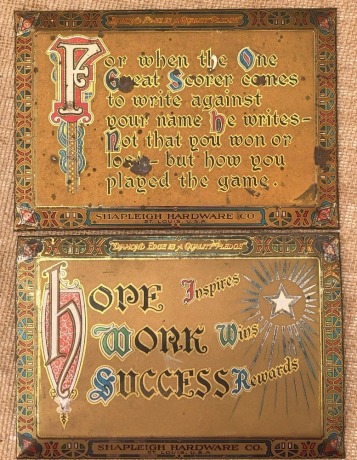 "DIAMOND EDGE IS A QUALITY PLEDGE"
For when the One
Great Scorer comes
to write against
your name he writes-
Not that you won or
lost - but how you
played the game.
SHAPLEIGH HARDWARE CO
ST. LOUIS, U.S.A.
"DIAMOND EDGE IS A QUALITY PLEDGE"
HOPE Inspires
WORK Wins
SUCCESS Rewards
SHAPLEIGH HARDWARE CO.
ST. LOUIS, U.S.A.